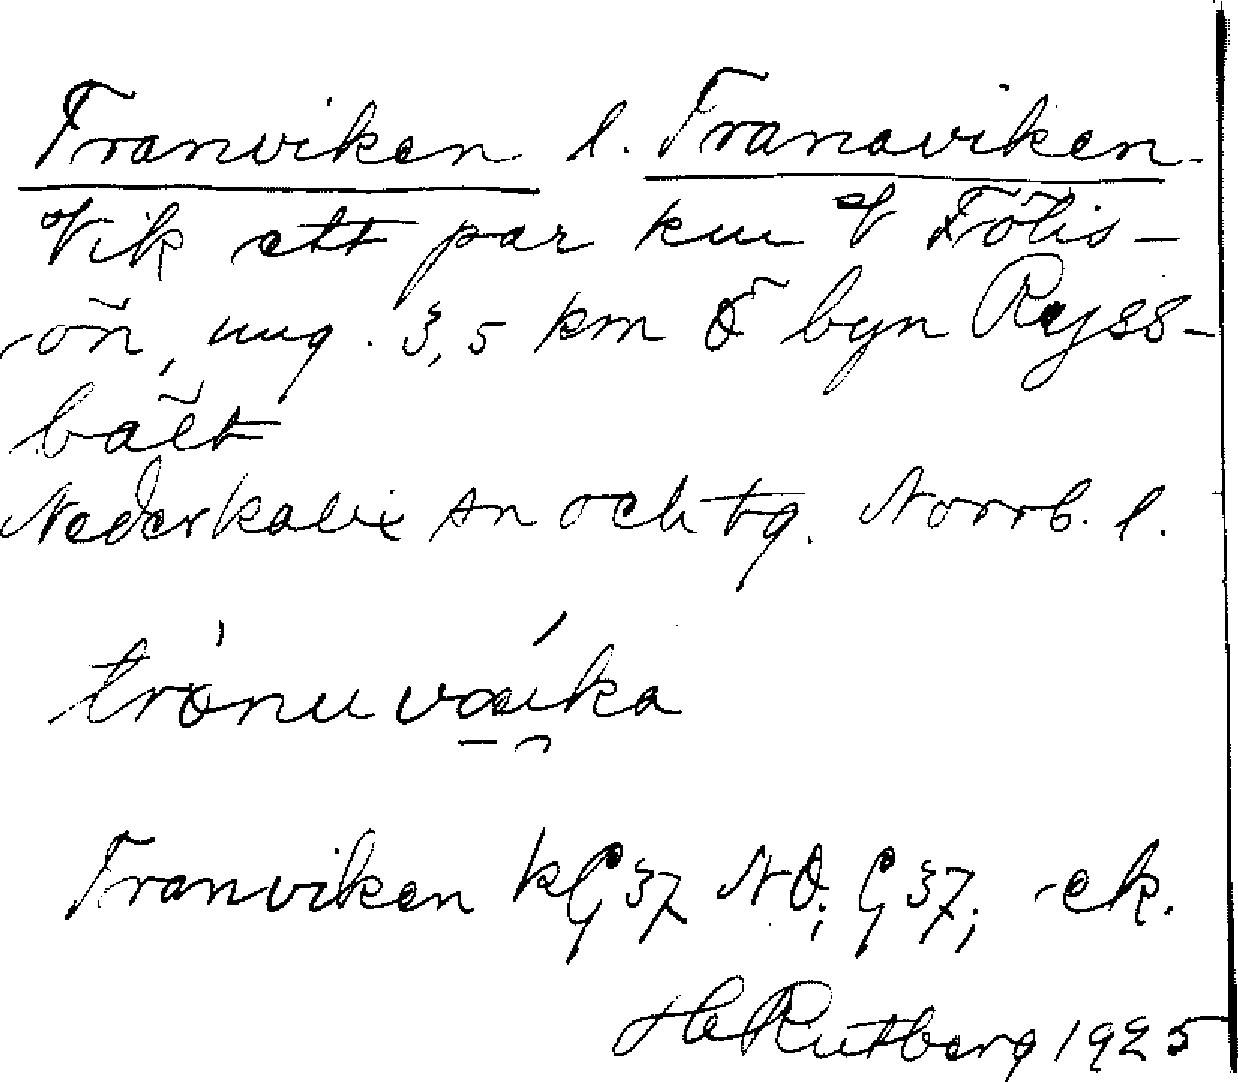 Tranviken l. Tranaviken
Vik ett par km V Fölis-
ön, ung. 3,5 km Ö byn Ryss-
bält
Nederkalix sn och tg. Norrb. l.
Tranviken kG 37 NO; G 37; ek.
H Rutberg 1925